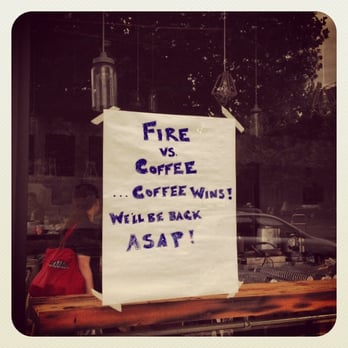 FIRE
VS.
COFFEE
...COFFEE WINS!
WE'LL BE BACK
ASAP!